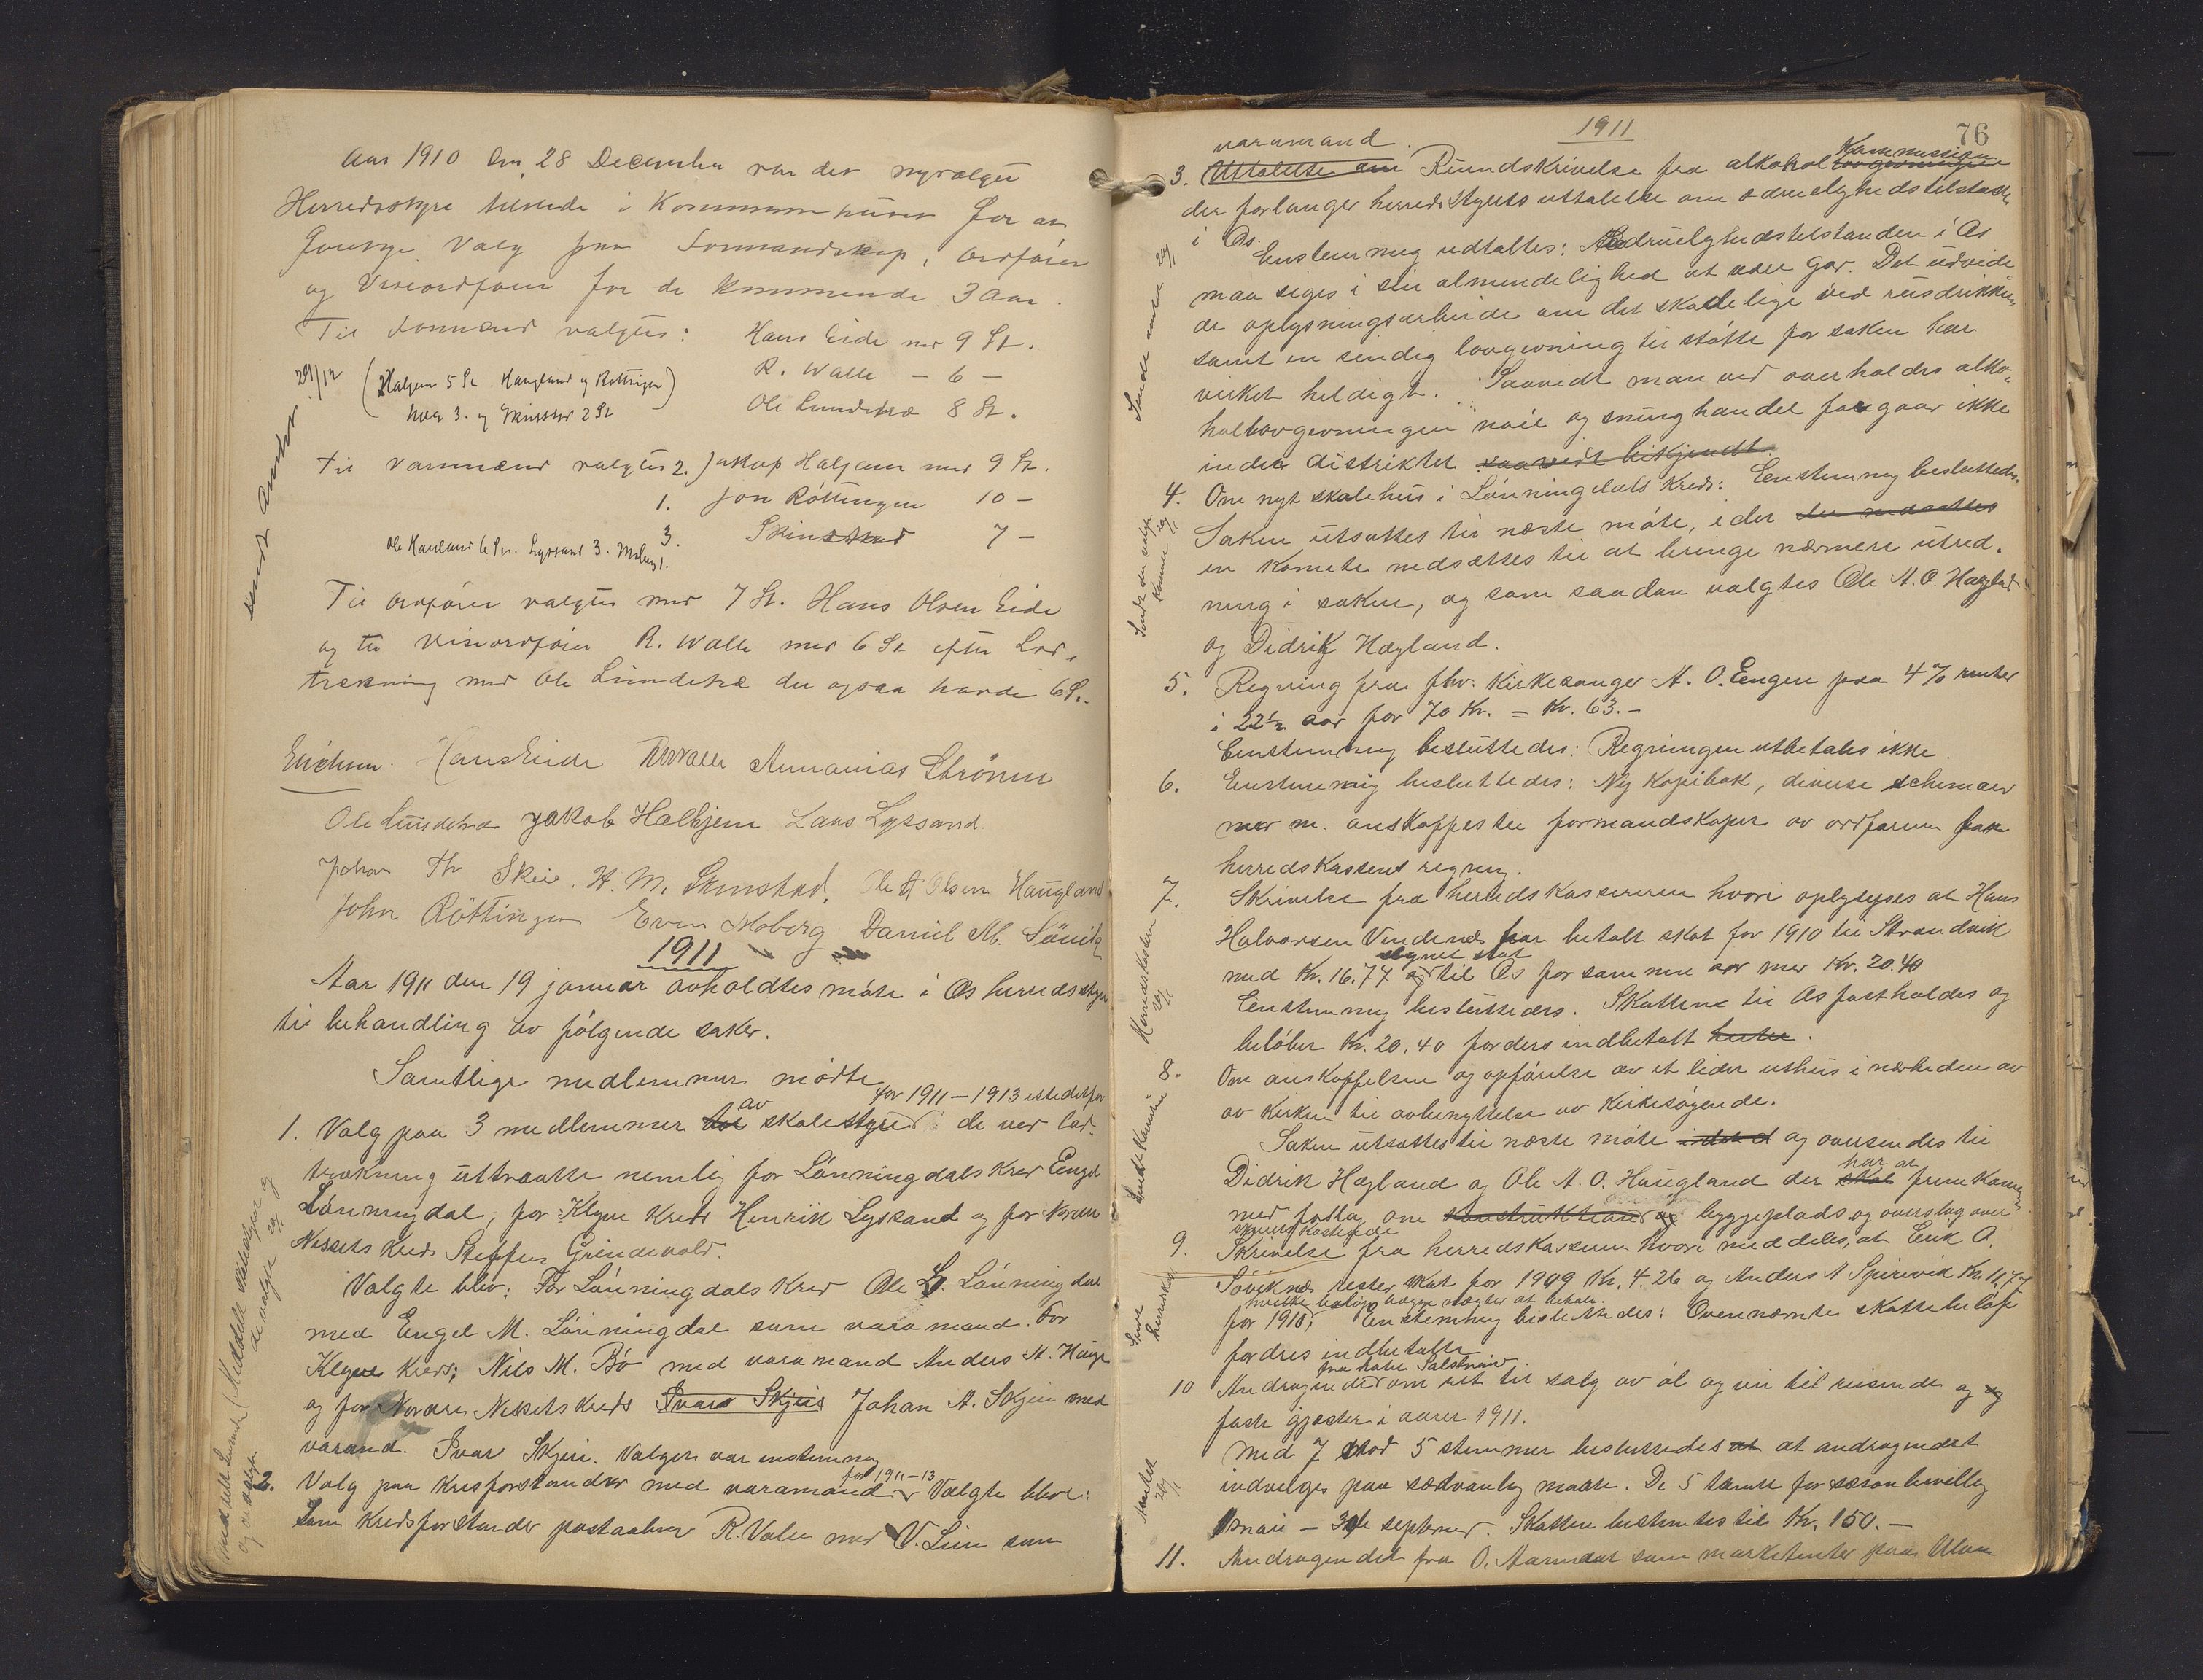 Aar 1910 den 28 December var det nyvalgte
Herredsstyre tilstede i Kommunehuset for at
foretage Valg paa Formandskap, Ordfører
og Viseordfører for de kommende 3 Aar.
Til Formænd valgtes: Hans Eide med 9 St.
R. Walle - 6 -
Ole Lundetræ 8 St.
29/12
(Haljem 5 St. Haugland og Røttingen)
hver 3. og Skinstad 2 St
sendt Amtet
Til Varamænd valgtes 2. Jakop Haljem med 9 St.
1. Jon Røttingen 10 -
3. Skinstad 7 -
Ole Haugland 6 St. Lyssand 3. Moberg 1.
Til Ordfører valgtes med 7 St. Hans Olsen Eide
og til Viseordfører R. Walle med 6 St efter Lod-
trækning med Ole Lundetræ der ogsaa havde 6 St.
Erichsen. Hans Eide R Walle Annanias Strönen
Ole Lundetræ Jakob Halhjem Lars Lyssand.
Johan Th Skeie. H. M. Skinstad. Ole A Olsen Haugland
John Röttingen Even Moberg Daniel M. Søvik
1911
Aar 1911 den 19 januar avholdtes møte i Os herredsstyre
til behandling av følgende saker.
Samtlige medlemmer mødte
for 1911-1913 istedetfor
1. Valg paa 3 medlemmer til av skolestyret de ved lod-
trækning uttraatte nemlig for Lønningdals kreds Engel
Lønningdal, for Klyve kreds Henrik Lyssand og for Nordre
Nessets kreds Steffen Grindevold.
Valgte blev: For Lønningdals kreds Ole L. Lønningdal
med Engel M. Lønningdal som varamand. For
Klyve kreds; Nils M. Bø med varamand Anders A. Hauge
og for Nordre Nessets kreds Ivar Skjeie Johan A. Skjeie med
varamd. Ivar Skjeie. Valgene var enstemmig
for 1911-13
2. Valg paa kredsforstander med varamand. Valgte blev:
Som kredsforstander postaabner R. Valle med V. Lien som
Meddelt skolestyret og
de valgte 20/1
1911
76
varamand.
3. Uttalelse om Rundskrivelse fra alkohollovgivningen Kommissionen
der forlanger herredsstyrets uttalelse om ædruelighedstilstanden
i Os.
Enstemmig udtaltes: Ædruelighedstilstanden i Os
maa siges i sin almindelighed at være god. Det utvide-
de oplysningsarbeide om det skadelige ved rusdrikken
samt en sindig lovgivning til støtte for saken har
virket heldigt. Saavidt man ved overholdes alko-
hollovgivningen nøie og smughandel foregaar ikke
inden distriktet saavidt bekjendt.
4. Om nyt skolehus i Lønningdals kreds: Enstemmig besluttedes.
Saken utsættes til næste møte, i det der nedsættes
en komite nedsættes til at bringe nærmere utred-
ning i saken, og som saadan valgtes Ole A. O. Haugland
og Didrik Hægland.
5. Regning fra fhv. Kirkesanger A. O. Engen paa 4% renter
i 22½ aar for 70 Kr. = Kr. 63.-
Enstemmig besluttedes: Regningen utbetales ikke.
6. Enstemmig besluttedes: Ny kopibok, diverse schemaer
med m. anskaffes til formandskapet av ordføreren paa
herredskassens regning.
7. Skrivelse fra herredskassereren hvori oplyses at Hans
Halvorsen Vindenes har betalt skat for 1910 til Strandvik
med Kr. 16.77 og til Os for samme aar med Kr. 20.40
Enstemmig besluttedes. Skatten til Os fastholdes og
beløbet Kr. 20.40 fordres indbetalt
8. Om anskaffelsen og opførelse av et lidet uthus i nærheden av
av kirken til avbenyttelse av kirkesøgende.
Saken utsættes til næste møte og oversendes til
Didrik Hægland og Ole A. O. Haugland der skal har at fremkomme
med forslag om konstruktion og byggeplads og overslag over
9. Skrivelse fra herredskasseren hvori meddeles, at Erik O.
Søviknes rester skat for 1909 Kr. 4.26 og Anders A Spirevik Kr. 11.77
hvilke beløp begge nægter at betale.
for 1910. Enstemmig besluttedes: Ovennævnte skattebeløp
fordres indbetalte
fra hotel Solstrand
10 Andragende om ret til salg av øl og vin til reisende og og
faste gjæster i aaret 1911.
Med 7 mod 5 stemmer besluttedes at at andragendet
indvilges paa sædvanlig maate. De 5 stemte for sæsonbevilling
1 mai - 30te septemb. Skatten bestemtes til Kr. 150.-
11. Andragendet fra O. Aamdal som marketenter paa Ulven